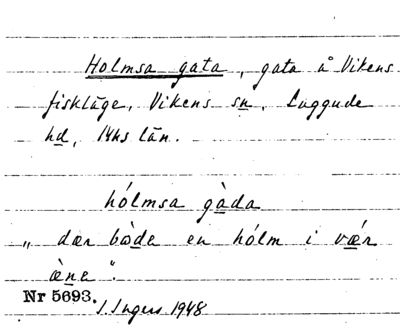 Holmsa gata, gata å Vikens
fiskläge, Vikens sn, Luggude
hd, Mhs län.
hólmsa gàda
„ dær bòde en hólm i vǽr
æ̀ne".
Nr 5693.
I. Ingers 1948